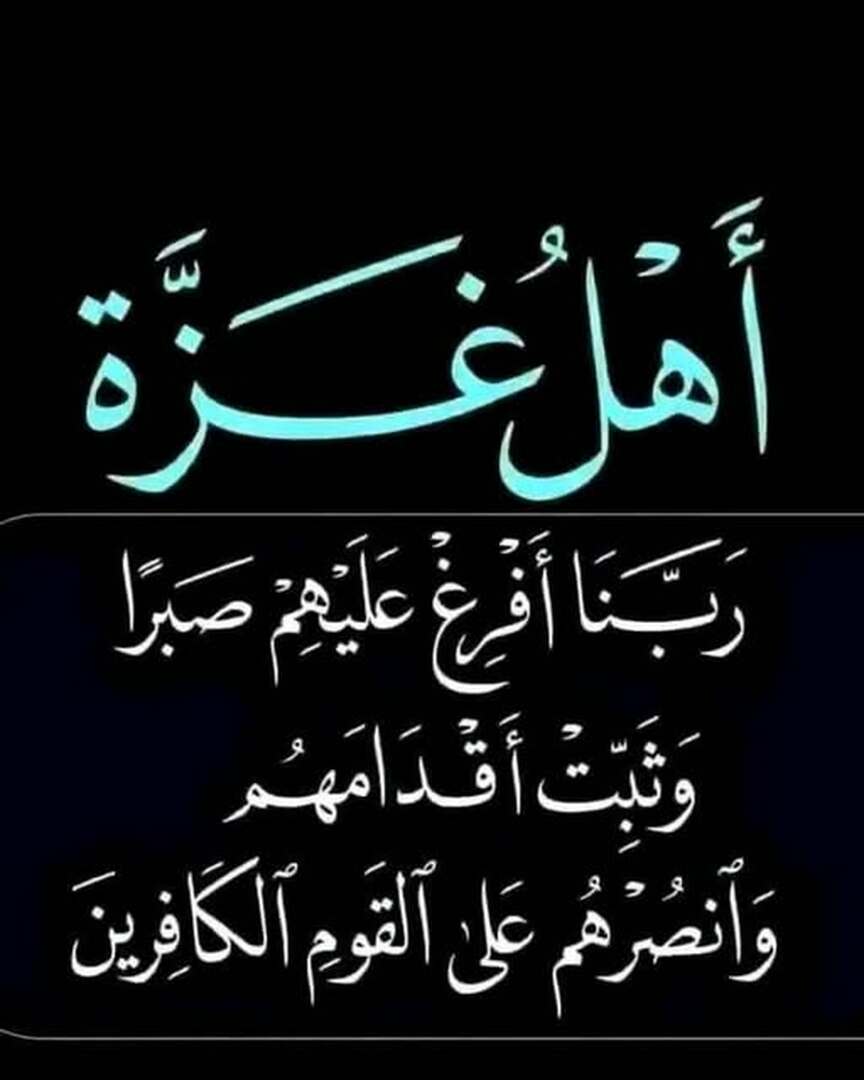 أَهْلُ غَزَّة
رَبَّنَا أَفْرِغْ عَلَيْهِمْ صَبْرًا
وَثَبِّتْ أَقْدَامَهُم
وَٱنصُرْهُم عَلَى ٱلقَومِ ٱلكَافِرِينَ